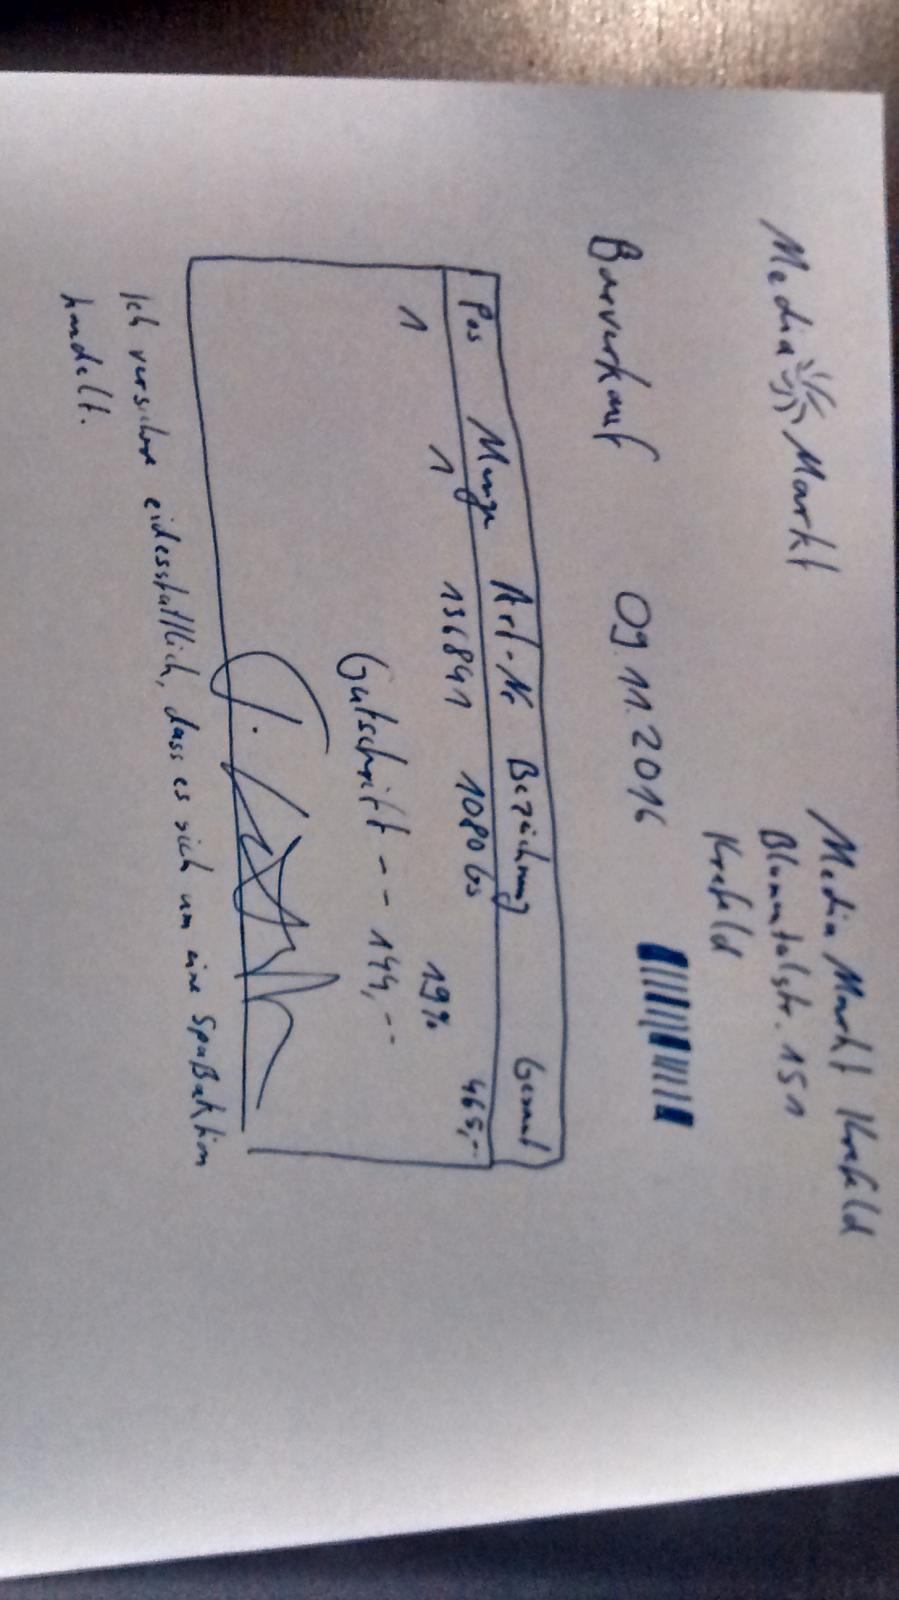 Media Markt
Media Markt Krefeld
Blumentalstr. 151
Krefeld
Barverkauf 09.11.2016
Pos Menge Art-Nr Bezeichnung Gesamt
1 1 136841 1080 Gs 465,--
19%
Gutschrift -- 144,--
Ich versichere eidesstattlich, dass es sich um eine Spaßaktion
handelt.